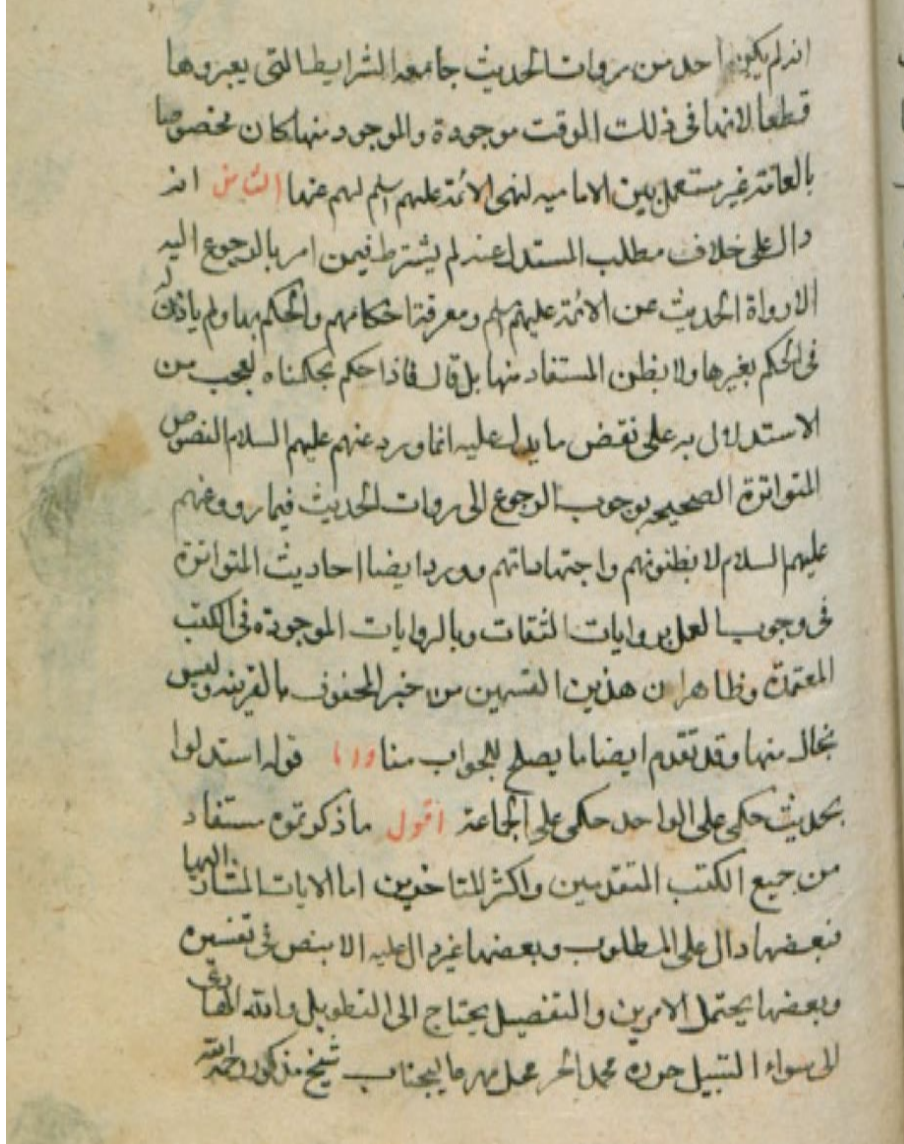 انه لم يكن احد من روات الحديث جامعه الشرايط التى يعبروها
قطعا لانها فى ذلك الوقت موجودة والموجود منها كان مخصوصا
بالعامة غير مستعمل بين الاماميه لنهى الائمة عليهم السلم لهم عنها الثامن انه
دال على خلاف مطلب المستدل اعنه لم يشترط فيمن امر بالرجوع اليه
الا رواة الحديث عن الائمة عليهم السلم ومعرفة احكامهم والحكم بها ولم ياذن له
فى الحكم بغيرها ولا بظن المستفاد منها بل قال فاذا حكم بحكمنا ه لعجب من
الاستدلال به على نقض ما يدل عليه انما ورد عنهم عليهم السلام النصوص
المتواترة الصحيحه بوجوب الرجوع الى روات الحديث فيما رووعنهم
عليهم السلام لا بظنونهم واجتهاداتهم وورد ايضا احاديث المتواترة
فى وجوب العمل بروايات الثقات وبالروايات الموجودة فى الكتب
المعتمدة وظاهر ان هذين القسمين من خبر المحفوف بالقرينه وليس
بخال منها وقد تقدم ايضا ما يصلح للجواب هنا قوله استدلوا
بحديث حكمى على الواحد حكمى على الجماعة اقول ما ذكرتموه مستفاد
من جميع الكتب المتقدمين واكثر المتاخرين اما الايات المشار اليها
فبعضها دال على المطلوب وبعضها غير دال عليه الا بنص فى تفسيره
وبعضها يحتمل الامرين والتفصيل يحتاج الى التطويل والله الهادى
الى سواء السبيل حرره محمد الحر محل مهر عاليجناب شيخ مذكور رحمه الله